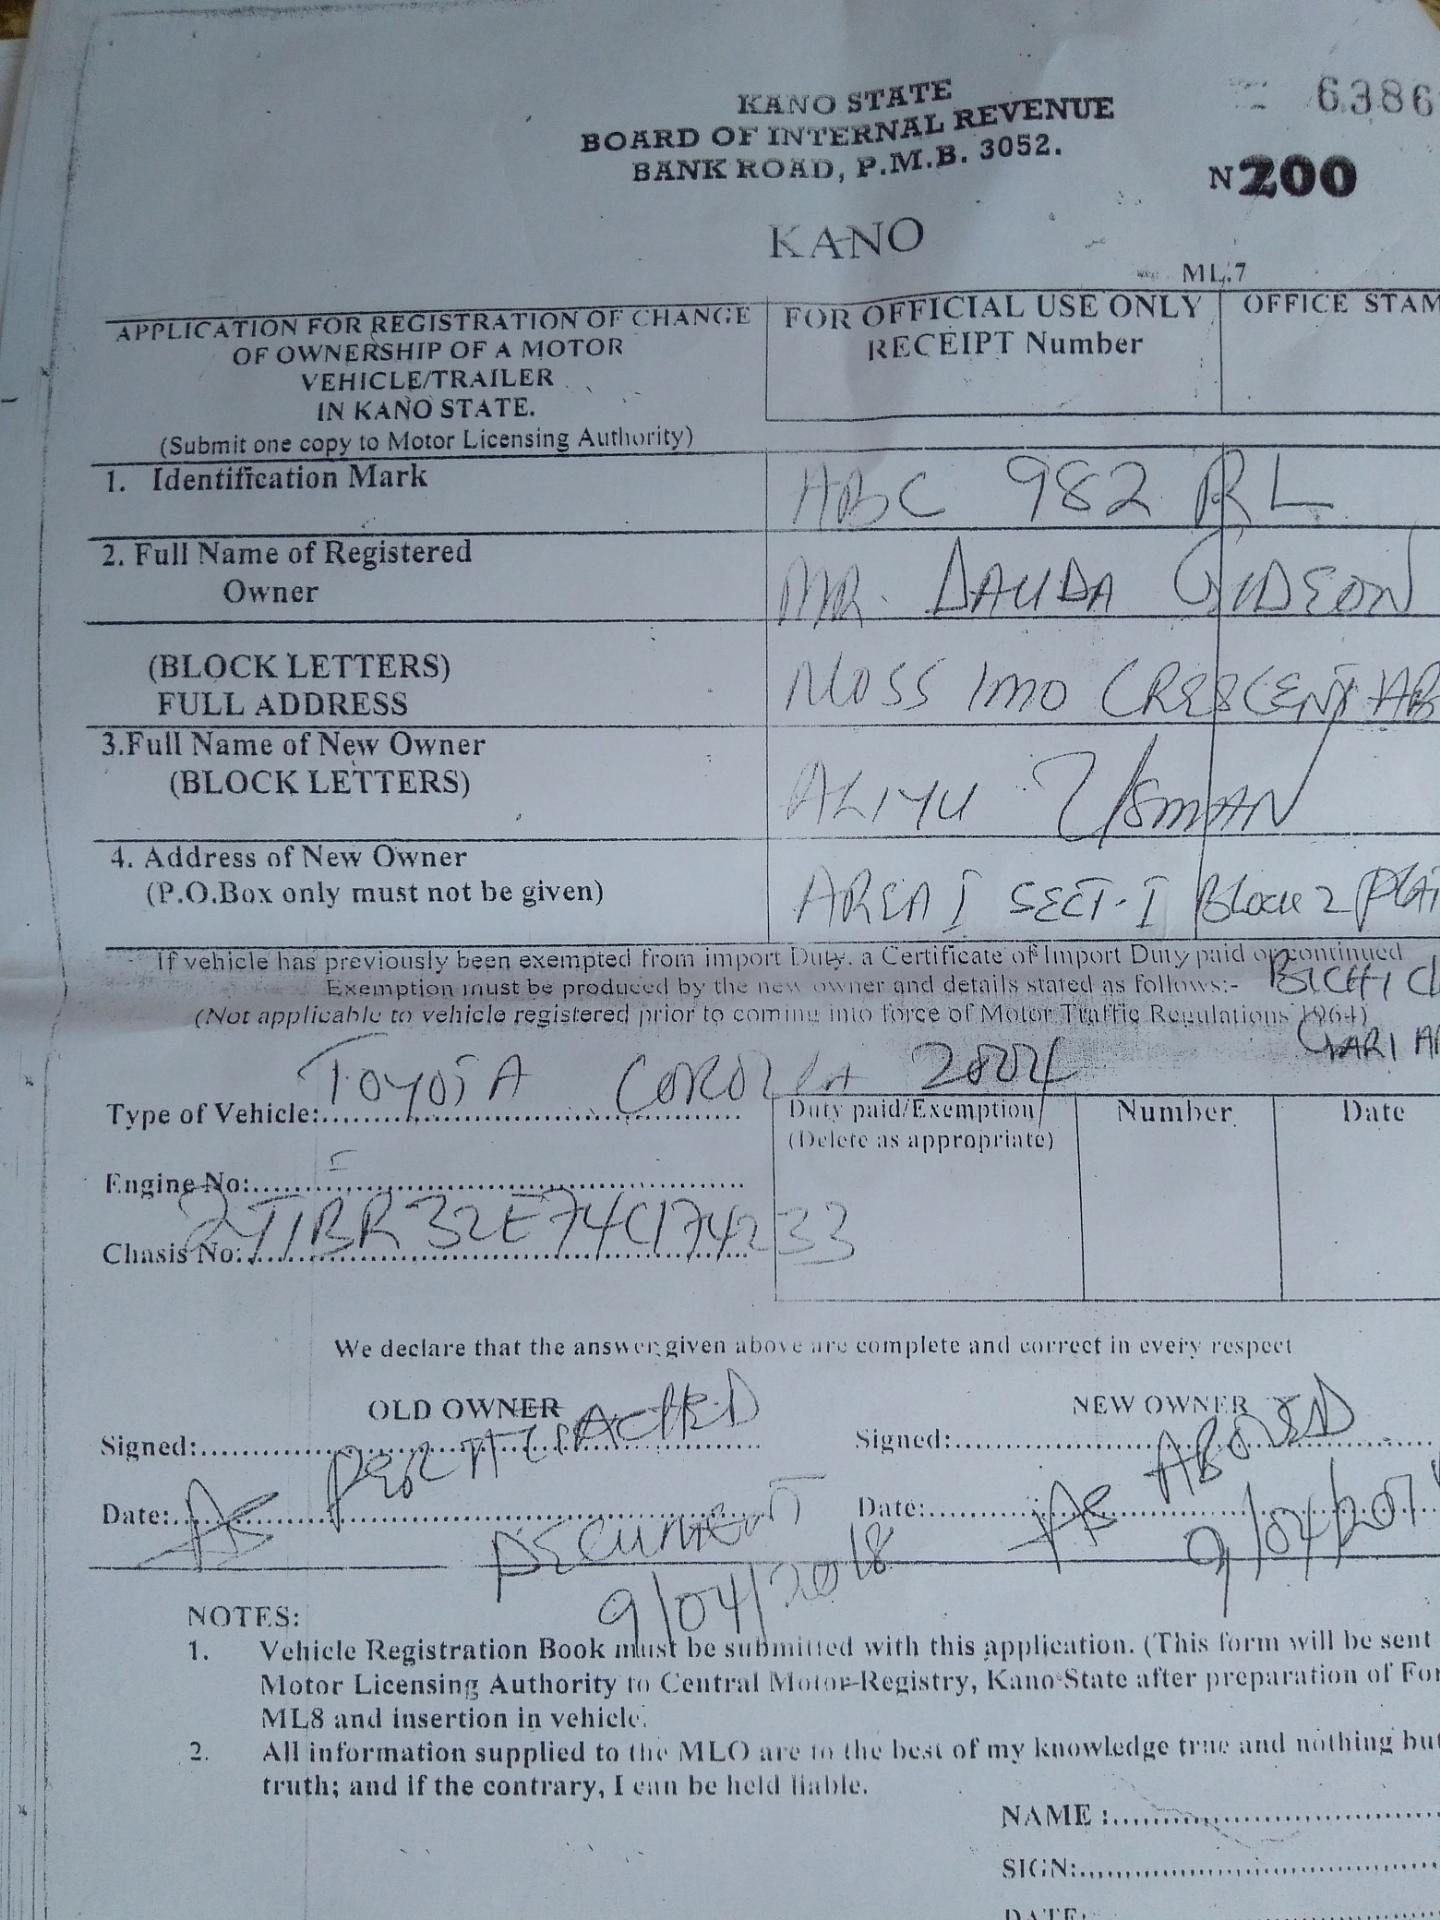 KANO STATE
6386
BOARD OF INTERNAL REVENUE
BANK ROAD, P.M.B. 3052.
N200
KANO
ML.7
APPLICATION FOR REGISTRATION OF CHANGE
OF OWNERSHIP OF A MOTOR
VEHICLE/TRAILER
IN KANO STATE.
(Submit one copy to Motor Licensing Authority)
FOR OFFICIAL USE ONLY
RECEIPT Number
OFFICE STAM
1. Identification Mark
ABC 982 RL
2. Full Name of Registered
Owner
MR. DAUDA GIDEON
(BLOCK LETTERS)
FULL ADDRESS
NO55 IMO CRESCENT AB
3.Full Name of New Owner
(BLOCK LETTERS)
ALIYU USMAN
4. Address of New Owner
(P.O.Box only must not be given)
AREA I SECT-I Block 2
If vehicle has previously been exempted from import Duty. a Certificate of Import Duty paid or continued
Exemption must be produced by the new owner and details stated as follows:-
BICHI
(Not applicable to vehicle registered prior to coming into force of Motor Traffic Regulations 1964)
Type of Vehicle: TOYOTA COROLLA 2004
Duty paid/Exemption
(Delete as appropriate)
Number
Date
Engine No:
Chasis No: 2T1BR32E74C174233
We declare that the answer given above are complete and correct in every respect
OLD OWNER
NEW OWNER
Signed:
Signed:
Date: AS PER ATTACHED
DOCUMENT
9/04/2018
Date: AS ABOVE
9/04/201
NOTES:
1. Vehicle Registration Book must be submitted with this application. (This form will be sent
Motor Licensing Authority to Central Motor-Registry, Kano State after preparation of For
ML8 and insertion in vehicle.
2. All information supplied to the MLO are to the best of my knowledge true and nothing but
truth; and if the contrary, I can be held liable.
NAME :
SIGN:
DATE: